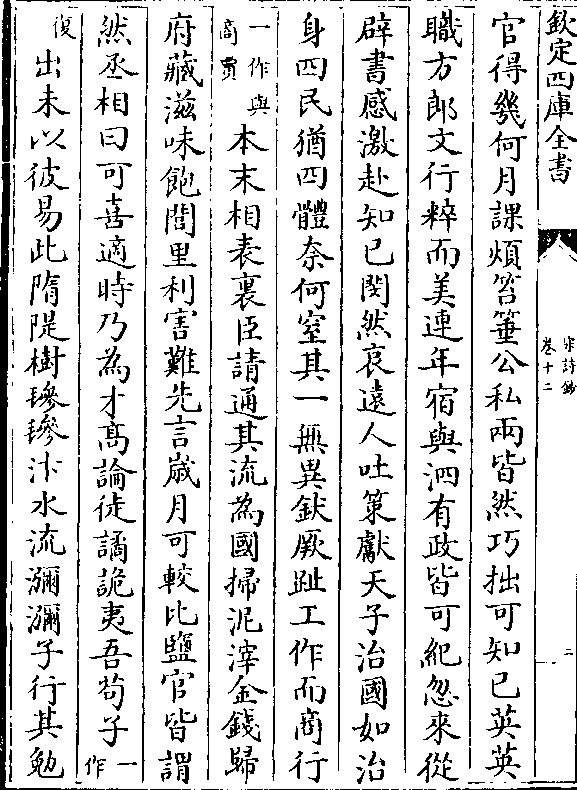 欽定四庫全書
宋詩鈔
卷十二
二
官得幾何月課煩笞箠公私兩皆然巧拙可知已英英
職方郎文行粹而美連年宿與泗有政皆可紀忽來從
辟書感激赴知已閔然哀遠人吐策獻天子治國如治
身四民猶四體奈何窒其一無異釱厥趾工作而商行
一作與商賈
本末相表裏臣請通其流為國掃泥滓金錢歸
府藏滋味飽閭里利害難先言歲月可較比鹽官皆謂
然丞相曰可喜適時乃為才髙論徒譎詭夷吾苟子
一作復
出未以彼易此隋隄樹毿毿汴水流瀰瀰子行其勉